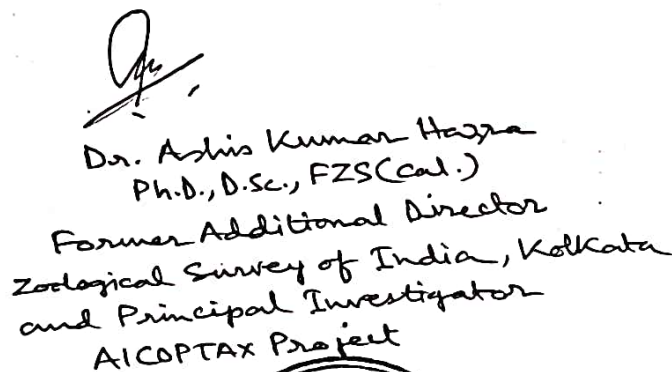 Dr. Ashis Kumar Hazra
Ph.D., D.Sc., FZS (Cal.)
Former Additional Director
Zoological Survey of India, Kolkata
and Principal Investigator
AICOPTAX Project